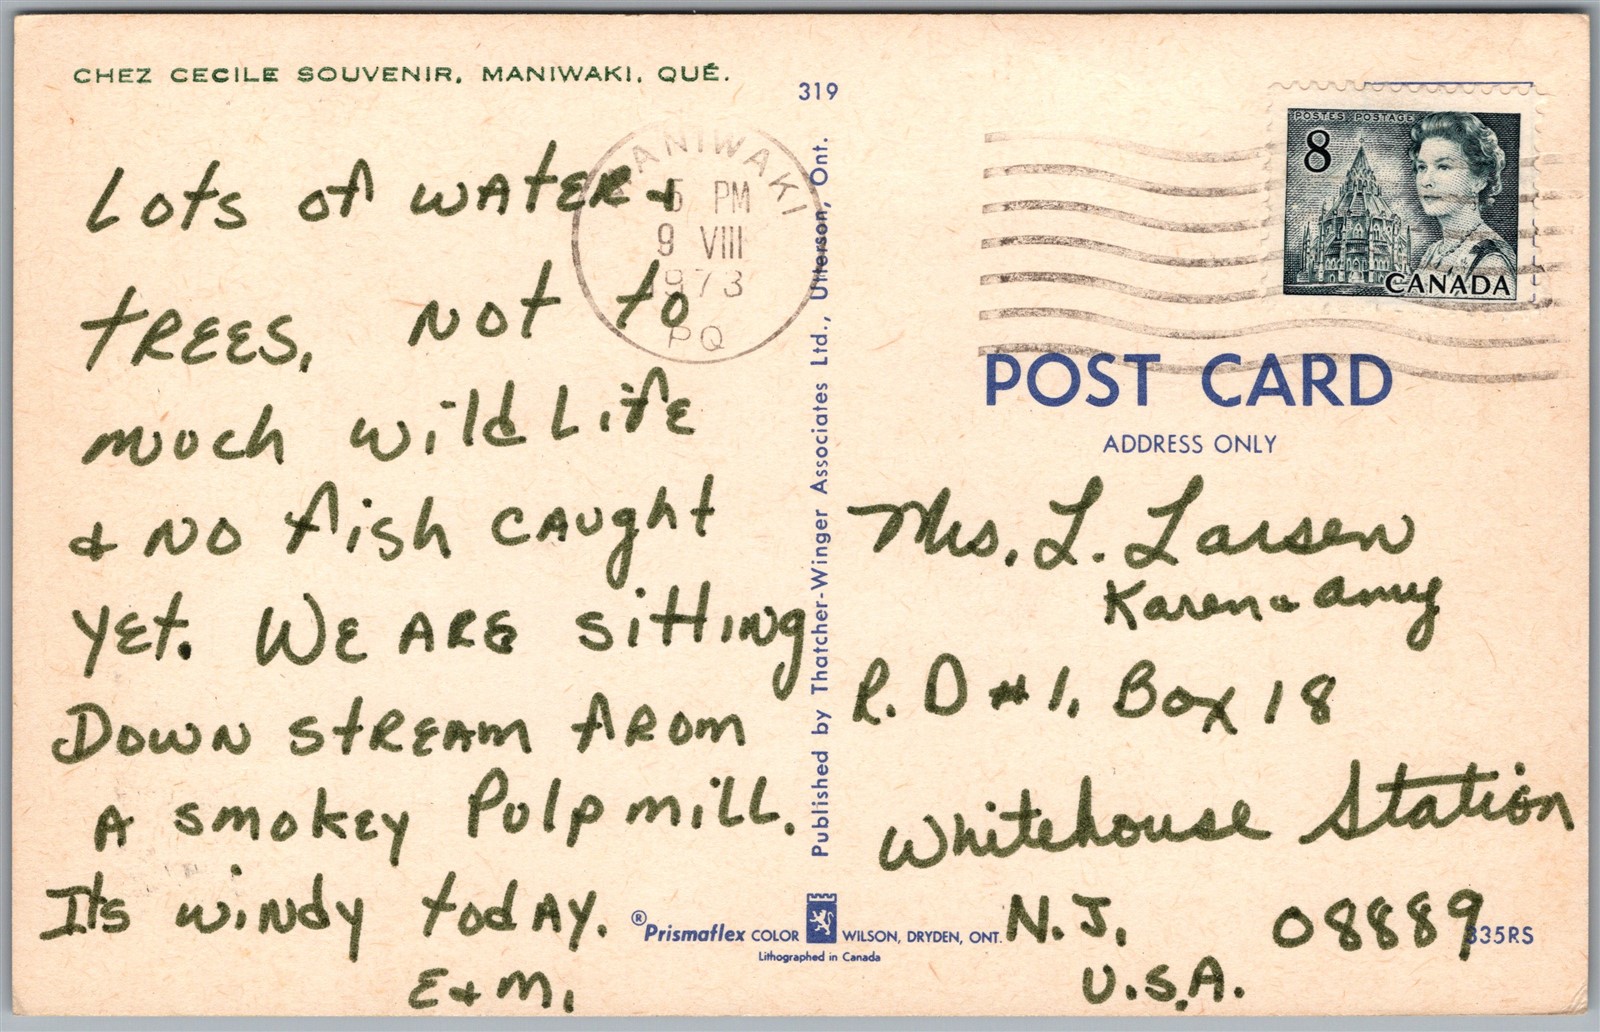 CHEZ CECILE SOUVENIR, MANIWAKI, QUÉ.
319
Lots of water &
trees, not to
much wild life
& no fish caught
yet. We are sitting
Down stream from
a smokey Pulp mill.
Its windy today.
E & M.
MANIWAKI
5 PM
9 VIII
1973
PQ
Published by Thatcher-Winger Associates Ltd., Utterson, Ont.
POSTES POSTAGE
8
CANADA
POST CARD
ADDRESS ONLY
Mrs. L. Larsen
Karen & Amy
R. D #1, Box 18
Whitehouse Station
N.J. 08889
U.S.A.
® Prismaflex COLOR WILSON, DRYDEN, ONT.
Lithographed in Canada
335RS